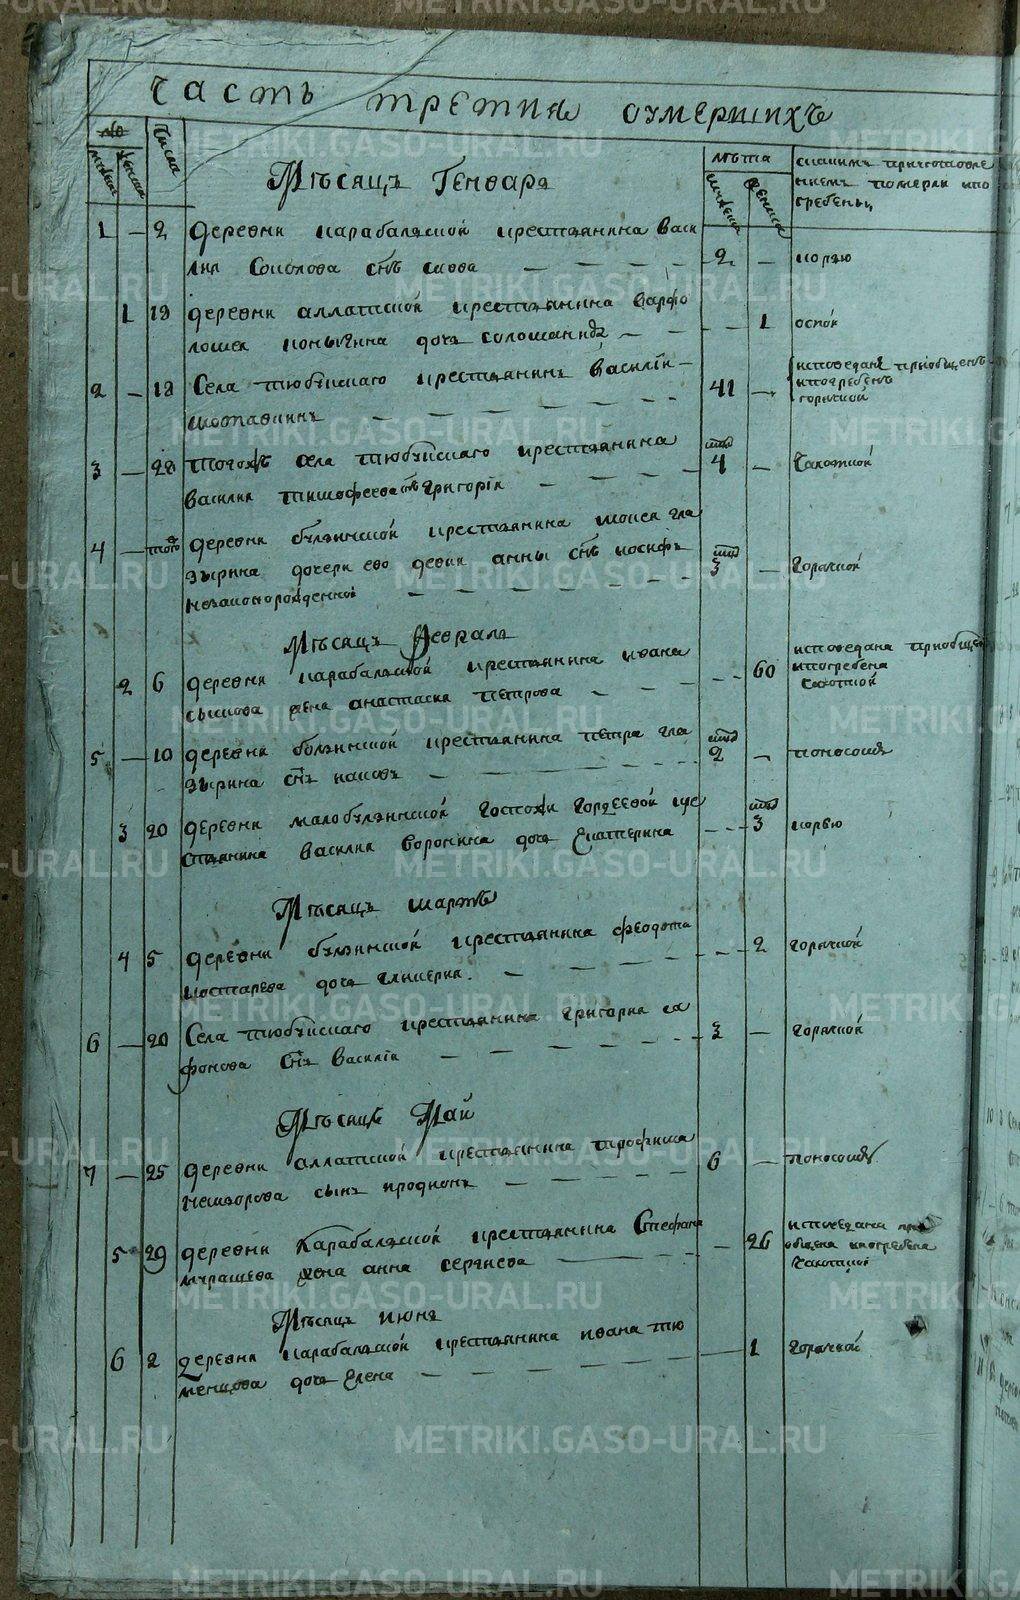 Часть третия оумершихъ
№ Числа лѣта
мужеска женска мужеска женска
скакимъ приготовле
ниемъ померли ипо
гребены
Мѣсяцъ Генваря
1 — 2 деревни карабаляской крестьянина Васи
лия Соколова снъ савва — — — — 2 — корью
1 19 деревни аллатской крестьянина варфо
ломея доча соломанида — — — 1 оспой
2 — 18 Села тюбуйскаго крестьянинъ василий 41 — исповеданъ приобщенъ
ипогребенъ
горячкой
3 — 28 Тогожъ села тюбуйскаго крестьянина
василия тимофеева снъ григорий — — 4 — чахоткой
4 — тогож деревни булзинской крестьянина моисея гла
зырина дочери ево девки анны снъ иосифъ 3 — горячкой
незаконорожденной — — — —
Мѣсяцъ Февраля
2 6 деревни карабаляской крестьянина ивана
сышова жена анастасия петрова — — — 60 исповедана приобщена
ипогребена
чахоткой
5 — 10 деревни булзинской крестьянина петра гла
зырина снъ — — — 2 — поносомъ
3 20 деревни малобулзинской госпожи гордеевой кре
стьянина василия воронина доча Екатерина — — 3 корью
Мѣсяцъ мартъ
4 5 деревни булзинской крестьянина феодота
костарева доча гликерия. — — — — 2 горячкой
6 — 20 Села тюбуйскаго крестьянина григория са
фонова снъ василий — — — — 3 — горячкой
Мѣсяцъ Май
7 — 25 деревни аллатской крестьянина трофима
сынъ иродионъ — — — 6 — поносомъ
5 29 деревни карабаляской крестьянина Стефана
мурашева жена анна сергиева — — 26 исповедана при
общена ипогребена
чахоткой
Мѣсяцъ июнь
6 2 деревни карабаляской крестьянина ивана тю
менцова доча Елена — — — — 1 горячкой
METRIKI.GASO-URAL.RU